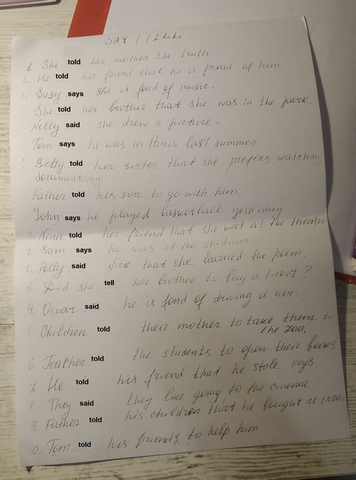 SAY / TELL
1. She told her mother the truth
2. He told his friend that he is proud of him.
Susy says she is fond of music.
She told her brother that she was in the park.
Nelly said she drew a picture.
Tom says he was in Paris last summer
Betty told her sister that she prefers watching
documentary
Father told his son to go with him
John says he played basketball yesterday
Nina told her friend that she was at the theatre
Sam says he was at the stadium
Polly said Nick that she learned the poem.
Did she tell her brother to buy a ticket?
4. Oscar said he is fond of driving a car.
Children told their mother to take them to
the zoo,
6. Teacher told the students to open their books
7. He told his friend that he stole
8. They said they like going to the cinema
9. Father told his children that he bought ice cream
0. Tom told his friends to help him